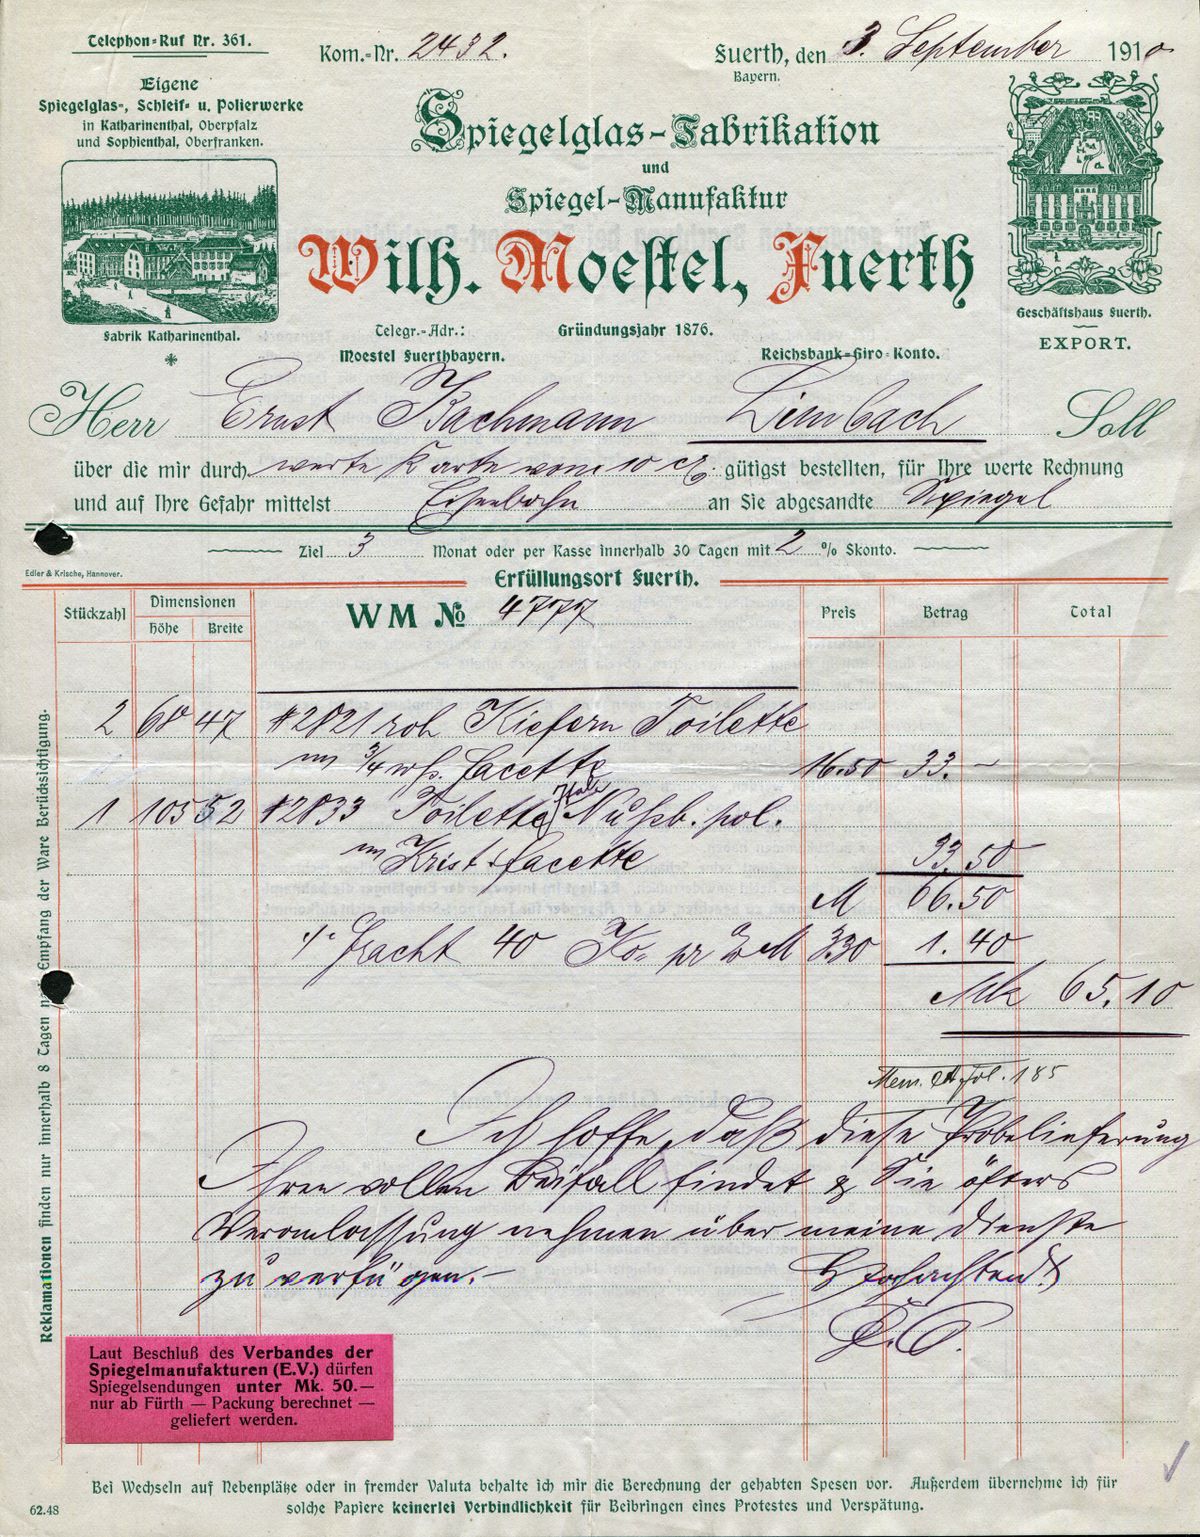 Telephon-Ruf Nr. 361.
Kom.-Nr. 2432.
Fuerth, den 3. September 1910
Bayern.
Eigene
Spiegelglas-, Schleif- u. Polierwerke
in Katharinenthal, Oberpfalz
und Sophienthal, Oberfranken.
Spiegelglas-Fabrikation
und
Spiegel-Manufaktur
Wilh. Moestel, Fuerth
Fabrik Katharinenthal.
Telegr.-Adr.:
Moestel Fuerthbayern.
Gründungsjahr 1876.
Reichsbank-Giro-Konto.
Geschäftshaus Fuerth.
EXPORT.
Herr Ernst Bachmann Limbach Soll
über die mir durch werte Karte vom 10 gütigst bestellten, für Ihre werte Rechnung
und auf Ihre Gefahr mittelst Eisenbahn an Sie abgesandte Spiegel
Ziel 3 Monat oder per Kasse innerhalb 30 Tagen mit 2 % Skonto.
Edler & Krische, Hannover.
Erfüllungsort Fuerth.
Stückzahl Dimensionen Höhe Breite WM No 4777 Preis Betrag Total
2 68 47 #2821 roh Kiefern Toilette
m 3/4 facette 16.50 33.-
1 105 52 #2833 Toilette Nußb. pol.
m Krist. facette 33.50
M 66.50
Fracht 40 Ko pr % M 3.30 1.40
Mk 65.10
Mem. A fol. 185
Ich hoffe, daß diese Probelieferung
Ihren vollen Beifall findet & Sie öfters
Veranlassung nehmen über meine Dienste
zu verfügen.-
Hochachtend
Reklamationen finden nur innerhalb 8 Tagen nach Empfang der Ware Berücksichtigung.
Laut Beschluß des Verbandes der
Spiegelmanufakturen (E.V.) dürfen
Spiegelsendungen unter Mk. 50.—
nur ab Fürth — Packung berechnet —
geliefert werden.
Bei Wechseln auf Nebenplätze oder in fremder Valuta behalte ich mir die Berechnung der gehabten Spesen vor. Außerdem übernehme ich für
solche Papiere keinerlei Verbindlichkeit für Beibringen eines Protestes und Verspätung.
62.48